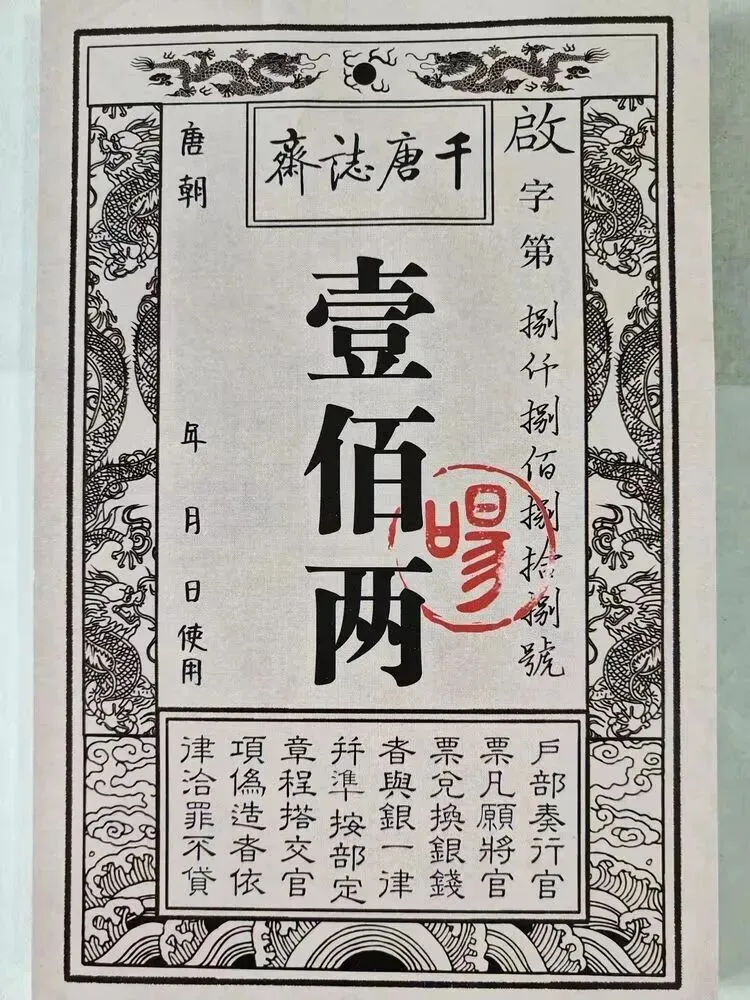 千唐誌齋
啟字第捌仟捌佰捌拾捌號
壹佰两
唐朝 年 月 日使用
戶部奏行官
票凡願將官
票兌換銀錢
者與銀一律
幷準按部定
章程搭交官
項僞造者依
律治罪不貸